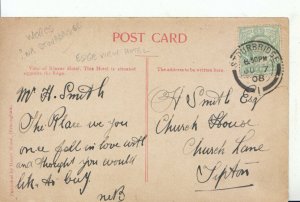 WORCS
NR STOURBRIDGE
EDGE VIEW HOTEL
POST CARD
View of Kinver Hotel. This Hotel is situated
opposite the Edge.
The address to be written here.
STOURBRIDGE
8.30PM
08
Mr H. Smith
The Place we you
once fell in love with
and thought you would
like to buy
H Smith Esq
Church House
Church Lane
Tipton